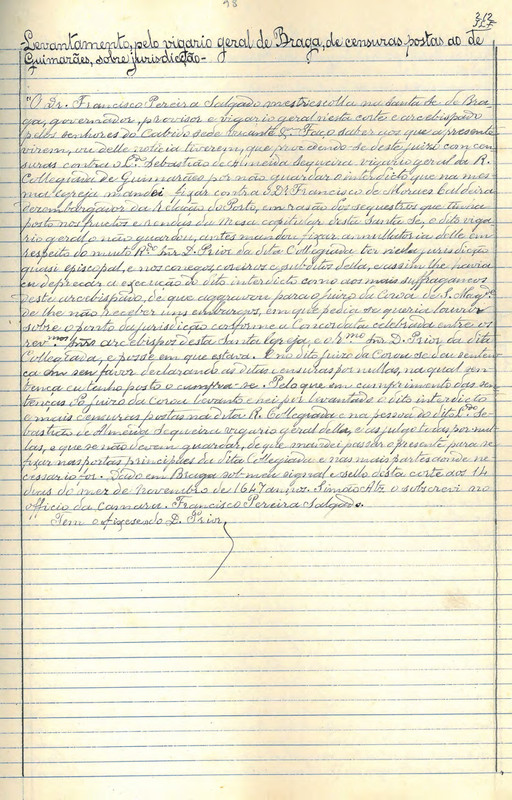 93
Levantamento, pelo vigario geral de Braga, de censuras postas ao de
Guimarães, sobre jurisdicção-
"O Dr. Francisco Pereira Salgado mestrescolla na Santa Sé de Bra-
ga, governador, provisor e vigario geral nesta corte e arcebispado
pelos senhores do Cabido sede vacante &. Faço saber aos que a presente
virem, ou della noticia tiverem, que procedendo-se deste juizo com cen-
suras contra o L.do Sebastião de Almeida Sequeira vigario geral da R.
Collegiada de Guimarães por não guardar o interdicto que na mes-
ma Igreja mandei fixar contra o Dr. Francisco de Moraes Caldeira
dezembargador da Relação do Porto, em rasão dos sequestros que tinha
posto nos fructos e rendas da Mesa capitular desta Santa Sé, o dito viga-
rio geral o não guardou, antes mandou fixar annullatoria delle em
respeito do muito R.do Snr. D. Prior da dita Collegiada ter nella jurisdicção
quasi episcopal, e nos conegos, coreiros e subditos della, e assim lhe havia
eu deprecar a execução do dito interdicto como aos mais suffraganeos
deste arcebispado, de que aggravou para o juizo da Coroa de S. Mag.de
de lhe não receber uns embargos, em que pedia se queria louvar
sobre o ponto da jurisdicção conforme a Concordata celebrada entre os
rev.mos Snrs. arcebispos desta Santa Igreja, e o Snr. D. Prior da dita
Collegiada, e posse em que estava. E no dito juizo da Coroa se deu senten-
ça em seu favor declarando as ditas censuras por nullas, na qual sen-
tença eu tenho posto o cumpra-se. Pelo que em cumprimento das sen-
tenças do juizo da coroa levanto e hei por levantado o dito interdicto
e mais censuras postas na dita R. Collegiada e na pessoa do dito L.do Se-
bastião de Almeida Sequeira vigario geral della, e as julgo todas por nul-
las, e que se não devem guardar, de que mandei passar o presente, para se
fixar nas portas principaes da dita Collegiada e nas mais partes donde ne-
cessario for. Dado em Braga sob meu signal e sello desta corte aos 14
dias do mez de Novembro de 1647 annos. Simão Alz. o subscrevi no
officio da camara. Francisco Pereira Salgado.
Tem o fixese do D. Prior.